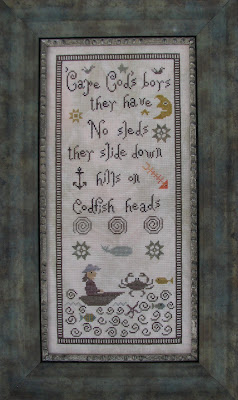 'Cape Cods boys
they have
No sleds
they slide down
hills on
Codfish heads